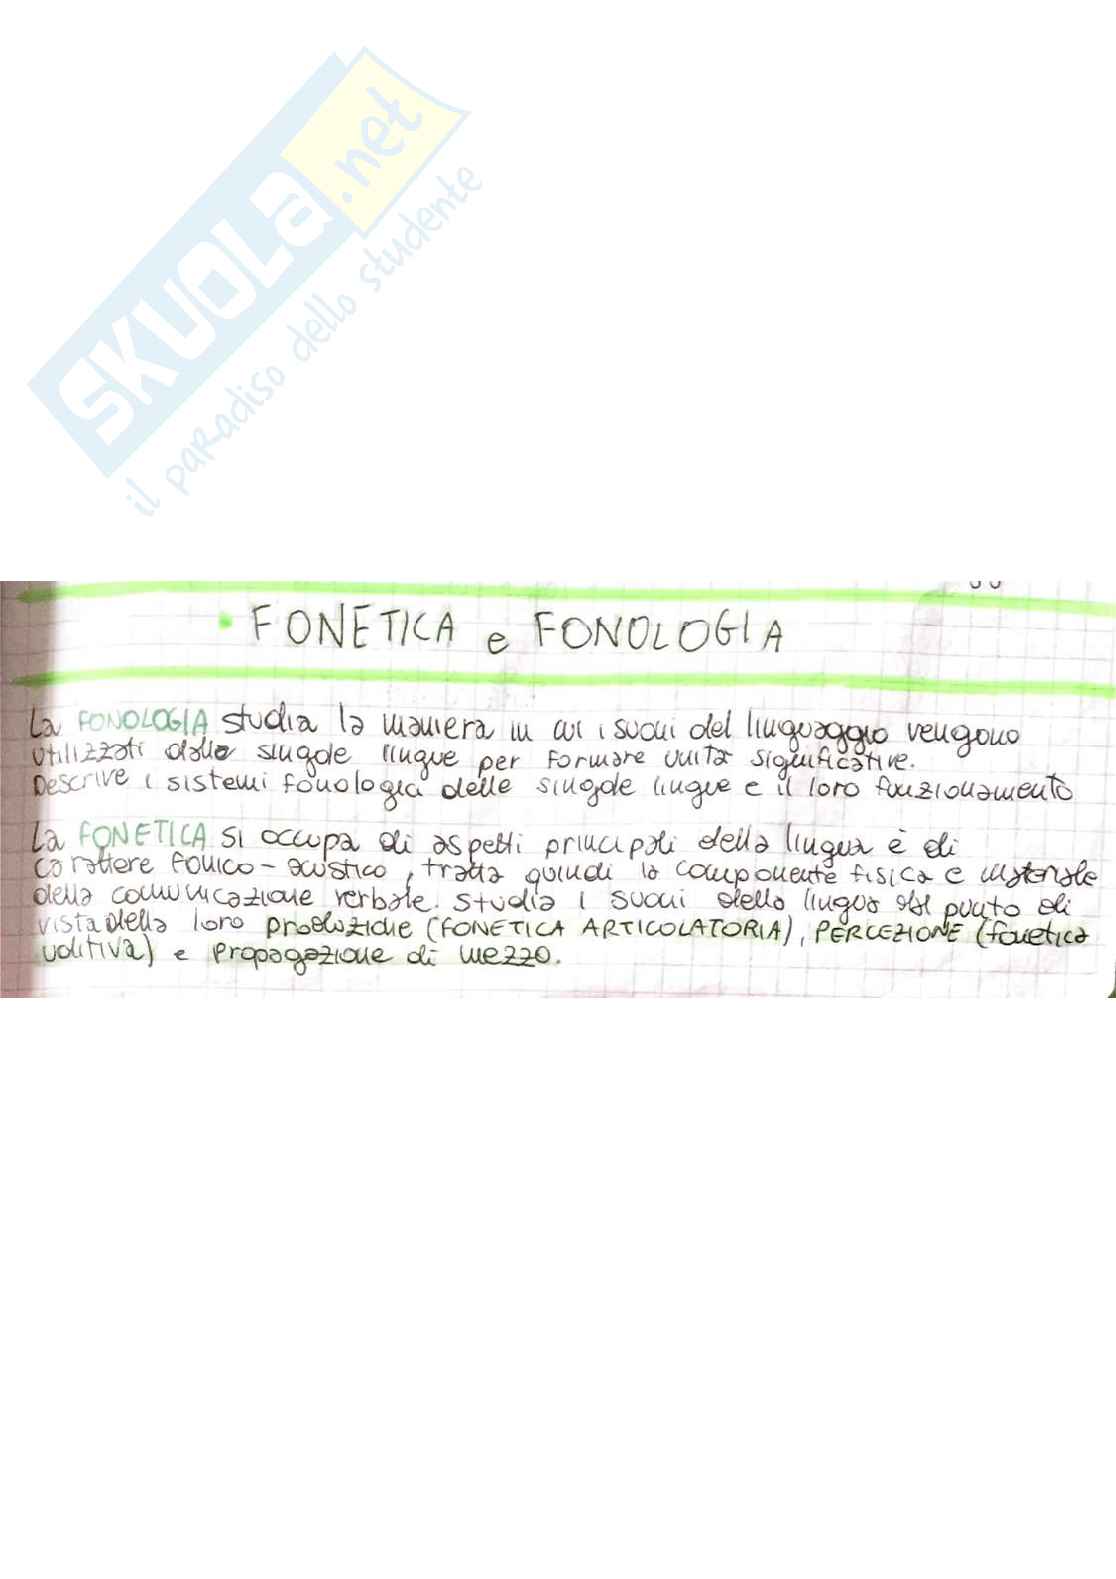 SKUOLA.net
il paradiso dello studente
• FONETICA e FONOLOGIA
La FONOLOGIA studia la maniera in cui i suoni del linguaggio vengono
utilizzati dalle singole lingue per formare unità significative.
Descrive i sistemi fonologia delle singole lingue e il loro funzionamento
La FONETICA si occupa di aspetti principali della lingua è di
carattere fonico-acustico, tratta quindi la componente fisica e materiale
della comunicazione verbale. Studia i suoni della lingua dal punto di
vista della loro produzione (FONETICA ARTICOLATORIA), PERCEZIONE (fonetica
uditiva) e propagazione di mezzo.